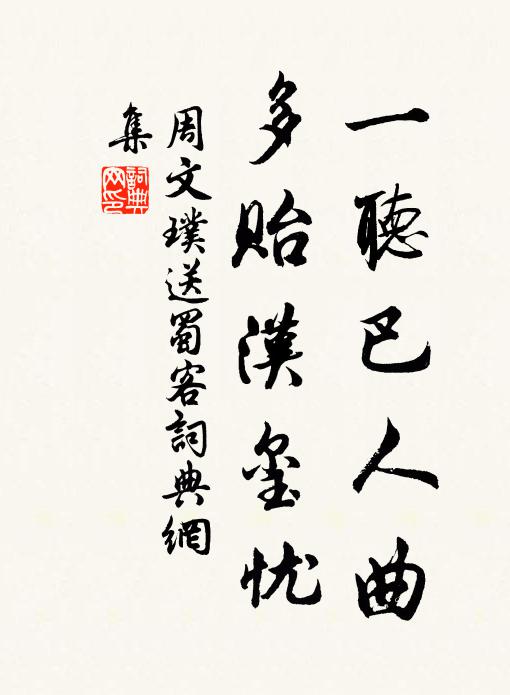 一聽巴人曲
多貽漢璽忧
周文璞送蜀客詞典網
集
詞典
网印